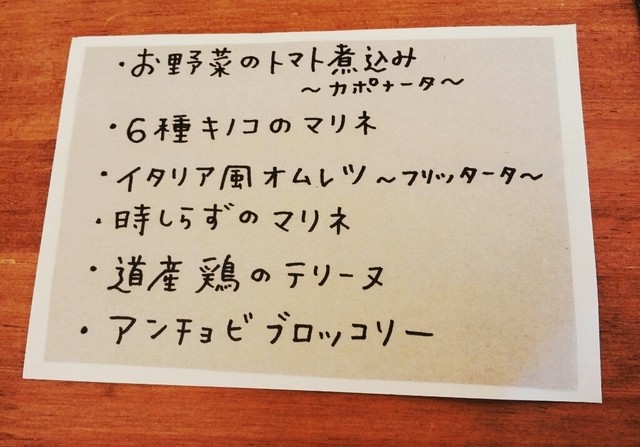 ・お野菜のトマト煮込み
～カポナータ～
・6種キノコのマリネ
・イタリア風オムレツ～フリッタータ～
・時しらずのマリネ
・道産鶏のテリーヌ
・アンチョビブロッコリー